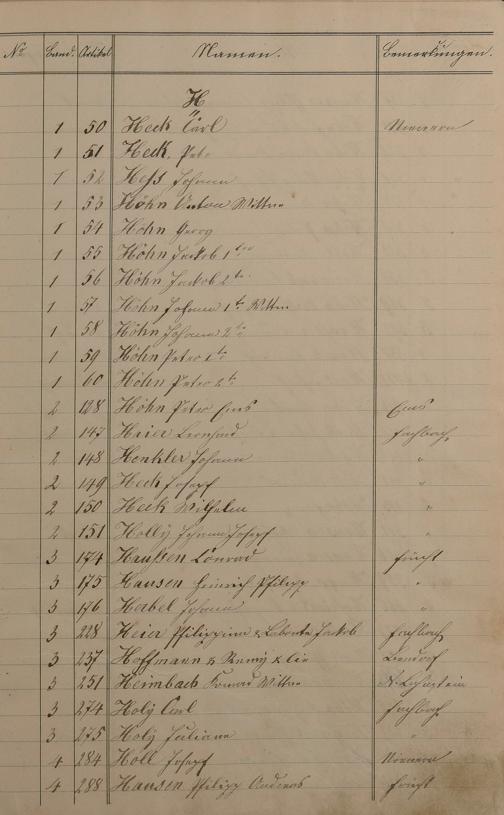 No Band. Artikel Namen. Bemerkungen.
H
1 50 Heck Carl Nievern
1 51 Heck, Peter
1 52 Hess Johann
1 53 Höhn Anton Wittwe
1 54 Höhn Georg
1 55 Höhn Jackob 1ter
1 56 Höhn Jackob 2ter
1 57 Höhn Johann 1ter Wittwe
1 58 Höhn Johann 2ter
1 59 Höhn Peter 1ter
1 60 Höhn Peter 2ter
2 128 Höhn Peter Ems Ems
2 147 Heier Leonhard Fachbach
2 148 Henkler Johann "
2 149 Heck Josef "
2 150 Heck Wilhelm "
2 151 Holly Johann Josepf "
3 174 Conrad Frücht
3 175 Hausen Heinrich Philipp "
3 176 Herbel Johann "
3 228 Heier Philippine & Jackob Fachbach
3 237 Hoffmann & Remy & Cie Bendorf
3 251 Heimbach Konrad Wittwe N. Lahnstein
3 274 Holy Carl Fachbach
3 275 Holy Juliane "
4 284 Holl Josepf Nievern
4 288 Hausen Philipp Andreas Frücht